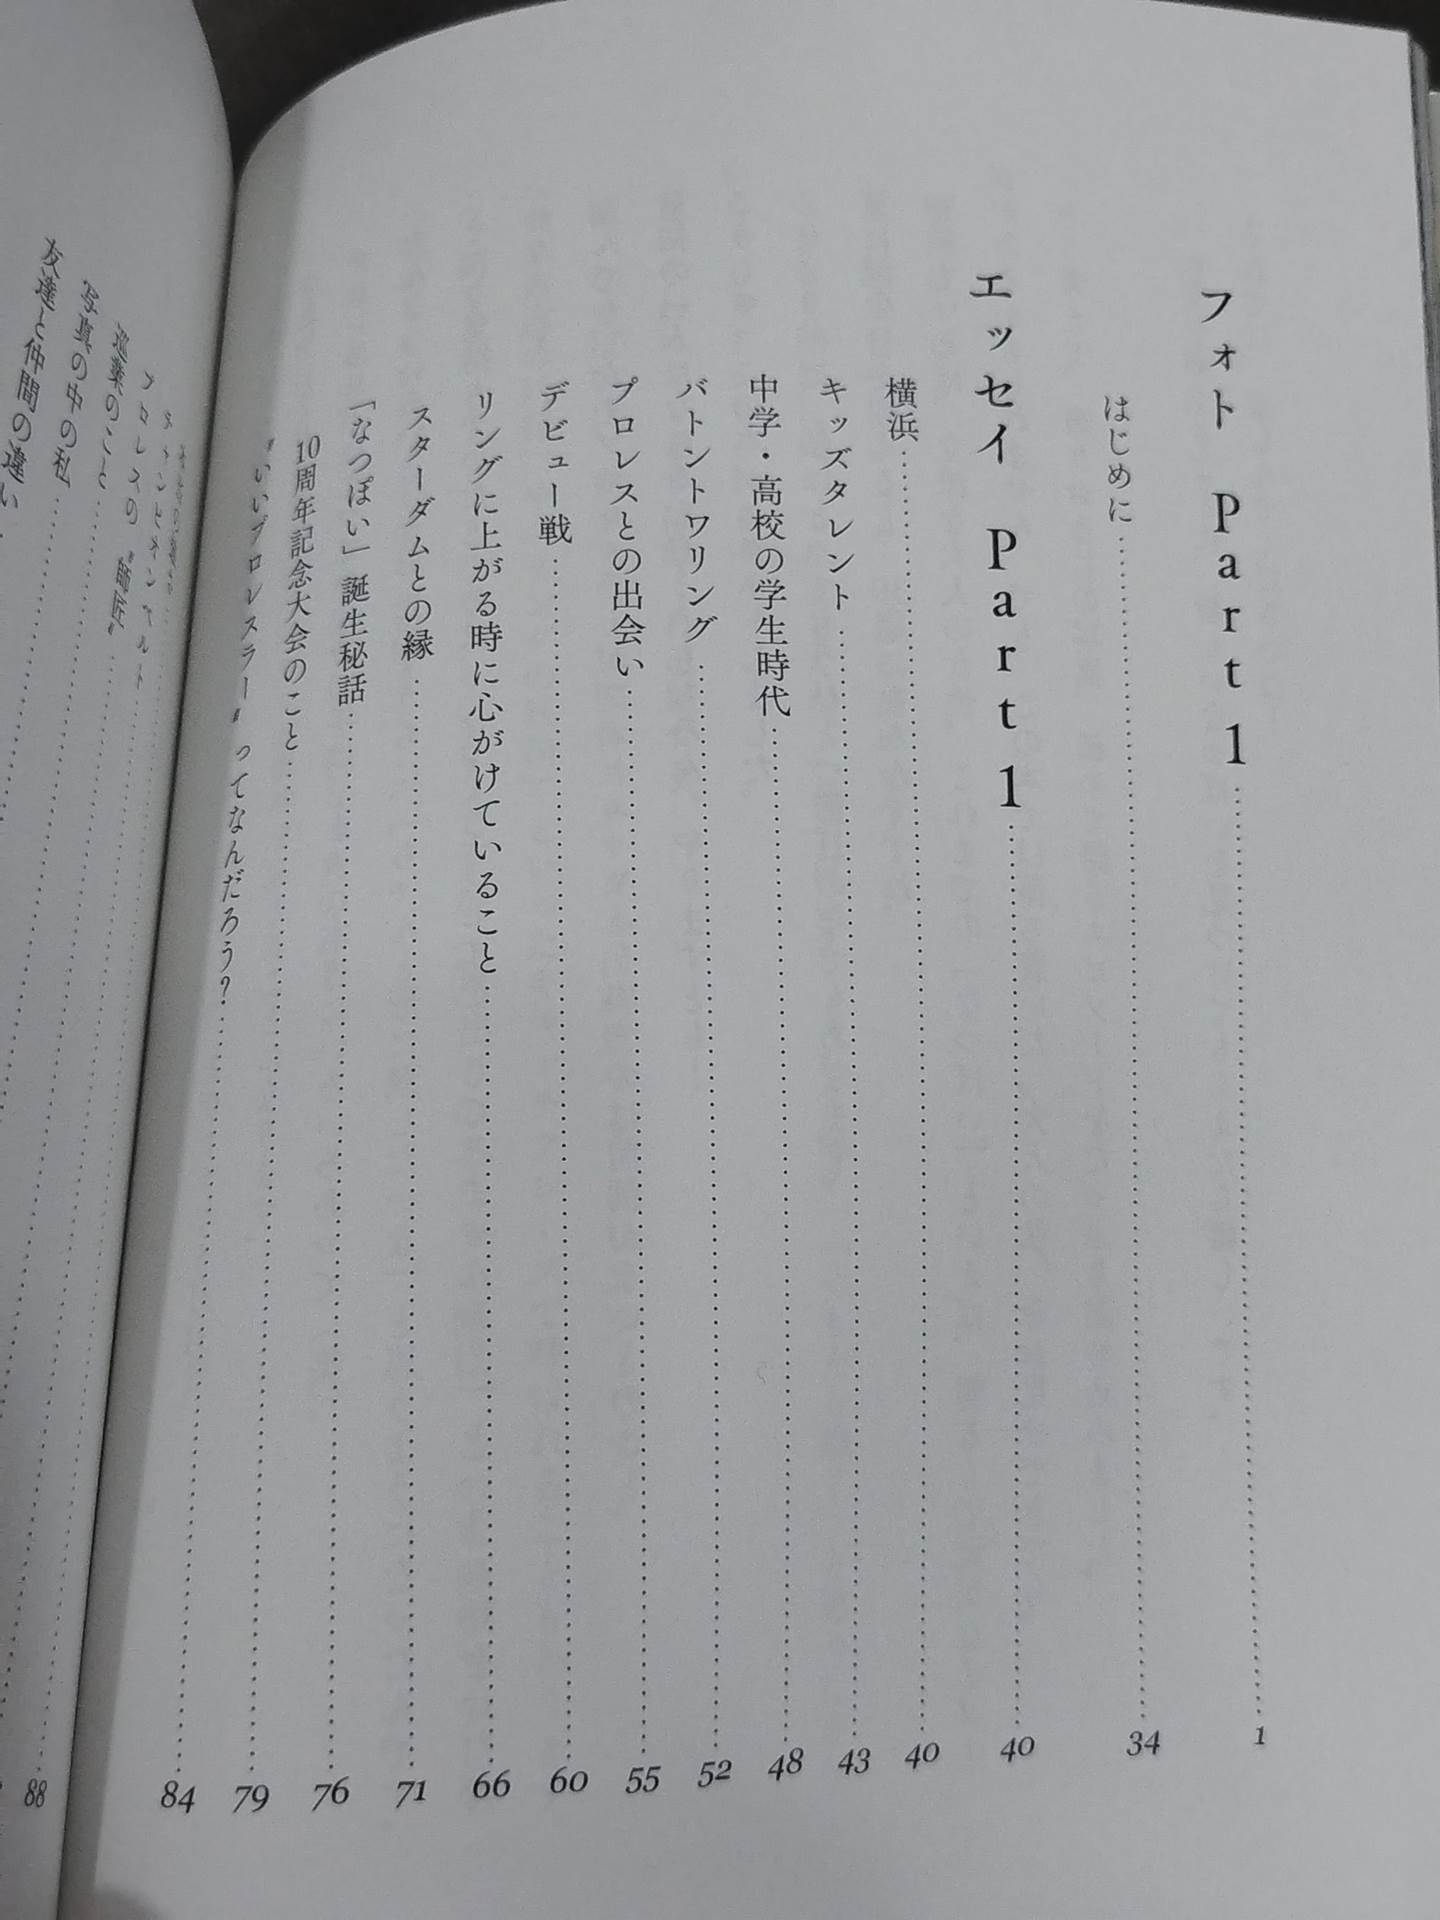 フォト Part 1 1
はじめに 34
エッセイ Part 1 40
横浜 40
キッズタレント 43
中学・高校の学生時代 48
バトントワリング 52
プロレスとの出会い 55
デビュー戦 60
リングに上がる時に心がけていること 66
スターダムとの縁 71
「なつぽい」誕生秘話 76
10周年記念大会のこと 79
〝いいプロレスラー〟ってなんだろう? 84
88
チャンピオンベルト
プロレスの〝師匠〟
巡業のこと
写真の中の私
友達と仲間の違い